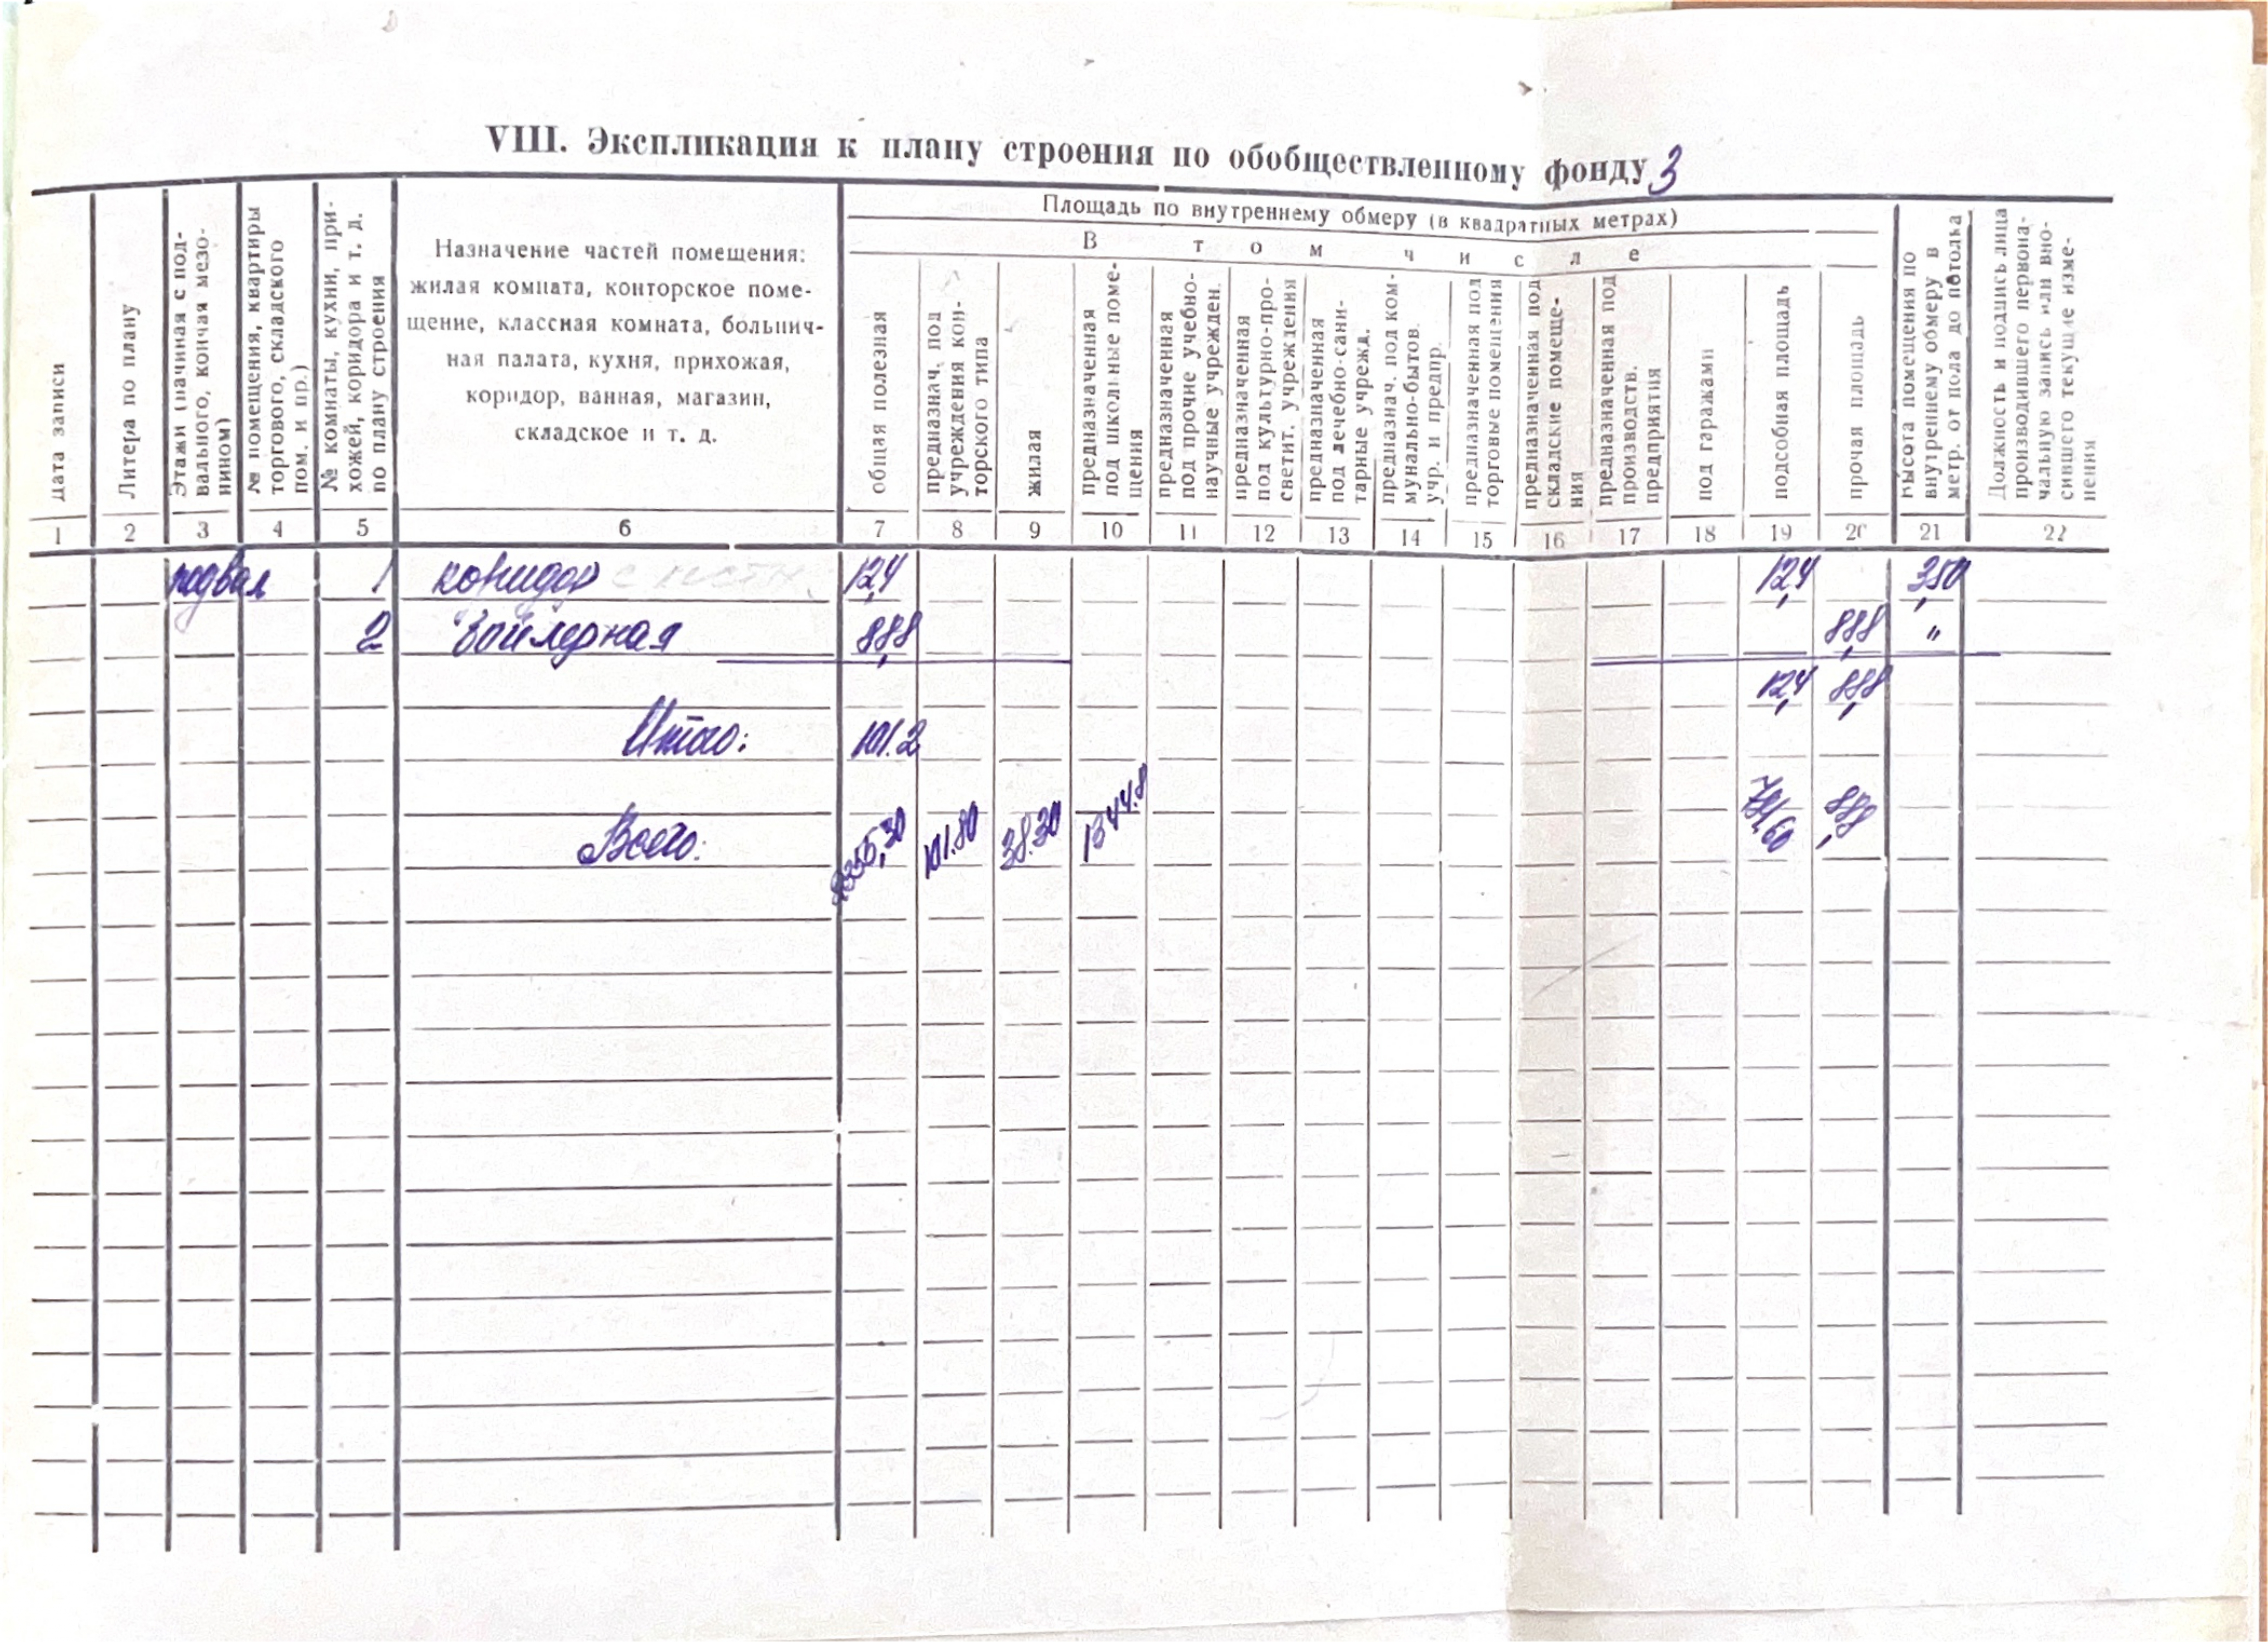 VIII. Экспликация к плану строения по обобществленному фонду 3
Дата записи
Литера по плану
Этажи (начиная с под-
вального, кончая мезо-
нином)
№ помещения, квартиры
торгового, складского
пом. и пр.)
№ комнаты, кухни, при-
хожей, коридора и т. д.
по плану строения
Назначение частей помещения:
жилая комната, конторское поме-
щение, классная комната, больнич-
ная палата, кухня, прихожая,
коридор, ванная, магазин,
складское и т. д.
Площадь по внутреннему обмеру (в квадратных метрах)
В том числе
общая полезная
предназнач. под
учреждения кон-
торского типа
жилая
предназначенная
под школьные поме-
щения
предназначенная
под прочие учебно-
научные учрежден.
предназначенная
под культурно-про-
светит. учреждения
предназначенная
под лечебно-сани-
тарные учрежд.
предназнач. под ком-
мунально-бытов.
учр. и предпр.
предназначенная под
торговые помещения
предназначенная под
складские помеще-
ния
предназначенная под
производств.
предприятия
под гаражами
подсобная площадь
прочая площадь
Высота помещения по
внутреннему обмеру в
метр. от пола до потолка
Должность и подпись лица
производившего первона-
чальную запись или вно-
сившего текущие изме-
нения
1 2 3 4 5 6 7 8 9 10 11 12 13 14 15 16 17 18 19 20 21 22
подвал 1 коридор 12,4 12,4 3,50
2 Бойлерная 88,8 88,8 "
12,4 88,8
Итого: 101.2
Всего: 101.80 38.30 1344.8 88,8